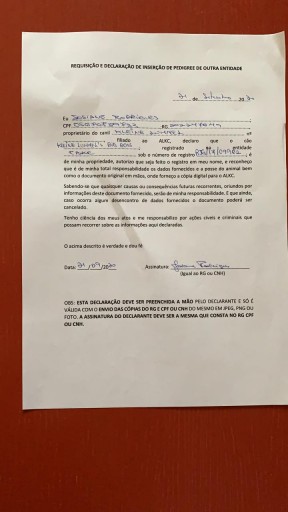 REQUISIÇÃO E DECLARAÇÃO DE INSERÇÃO DE PEDIGREE DE OUTRA ENTIDADE
21 de 20
Eu
CPF RG
proprietário do canil or
filiado ao ALKC, declaro que o cão
registrado na entidade
sob o número de registro e
de minha propriedade, autorizo que seja feito o registro em meu nome, e reconheço
que é de minha total responsabilidade os dados fornecidos e a posse do animal bem
como o documento original em mãos, onde forneço a cópia digital para o ALKC.
Sabendo-se que qualquer causas ou consequências futuras recorrentes, oriundos por
informações deste documento fornecido, serão de minha responsabilidade. E que ainda,
caso ocorra algum desencontro de dados fornecidos o documento poderá ser
cancelado.
Tenho ciência dos meus atos e me responsabilizo por ações cíveis e criminais que
possam recorrer sobre as informações aqui declaradas.
O acima descrito é verdade e dou fé
Data: Assinatura:
(Igual ao RG ou CNH)
OBS: ESTA DECLARAÇÃO DEVE SER PREENCHIDA A MÃO PELO DECLARANTE E SÓ É
VÁLIDA COM O ENVIO DAS CÓPIAS DO RG E CPF OU CNH DO MESMO EM JPEG, PNG OU
FOTO. A ASSINATURA DO DECLARANTE DEVE SER A MESMA QUE CONSTA NO RG CPF
OU CNH.